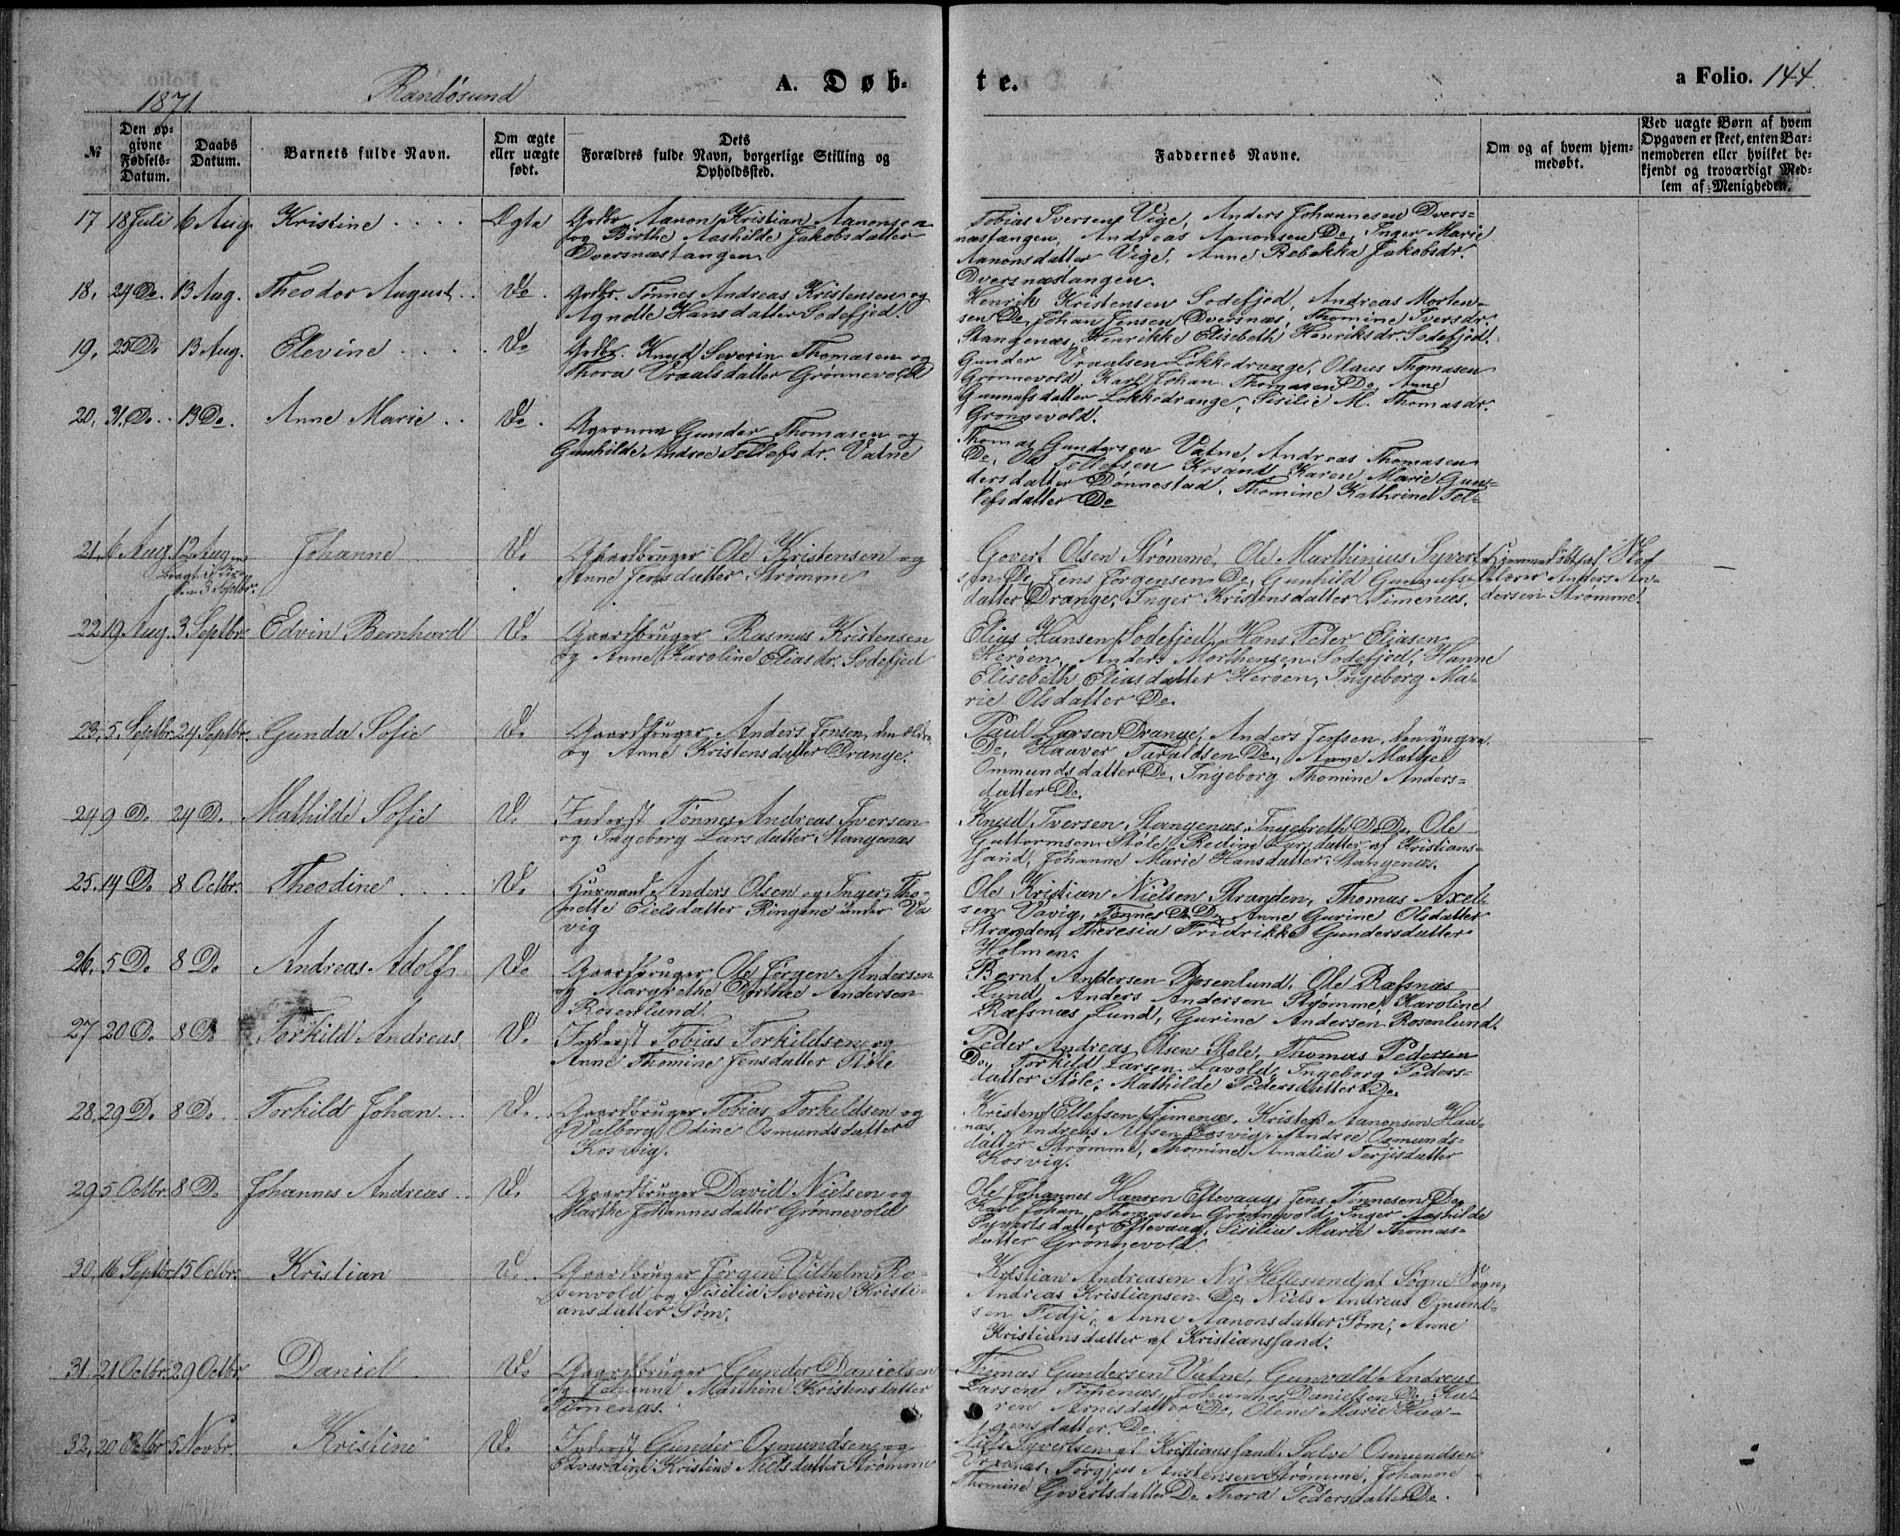 1871
Randøsund
A. Døb-
te.
a Folio. 144.
№
Den op-
givne
Fødsels-
Datum.
Daabs
Datum.
Barnets fulde Navn.
Om ægte
eller uægte
født.
Dets
Forældres fulde Navn, borgerlige Stilling og
Opholdssted.
Faddernes Navne.
Om og af hvem hjem-
medøbt.
Ved uægte Børn af hvem
Opgaven er skeet, enten Bar-
nemoderen eller hvilket be-
kjendt og troværdigt Med-
lem af Menigheden.
17 18 Juli 6 Aug. Kristine Ægte
Grdbr. Aanon Kristian Aanonsen
og Birthe Mathilde Jakobsdatter
Dversnæstangen.
Tobias Iversen Vige, Anders Johannesen Dvers-
næstangen, Andreas Aanonsen Do, Inger Marie
Aanonsdatter Vige, Anne Rebekka Jakobsdr.
Dversnæstangen.
18. 24 Do. 13 Aug. Theodor August Do.
Grdbr. Tønnes Andreas Kristensen og
Agnette Hansdatter Sodefjed.
Henrik Kristensen Sodefjed, Andreas Morten-
sen Do, Johan Jensen Dversnæs, Thomine Iversdr.
Stangenæs, Henrikke Elisebeth Henriksdr. Sodefjed.
19. 25 Do 13 Aug. Elevine Do
Grdbr. Knud Severin Thomasen og
Thora Vraalsdatter Grønnevold
Gunder Vraalsen Løkkedrange, Olaus Thomasen
Grønnevold, Karl Johan Thomasen Do, Anne
Gunnufsdatter Løkkedrange, Sisilie M. Thomasdr.
Grønnevold.
20. 31. Do. 13 Do. Anne Marie Do.
Agronom Gunder Thomasen og
Gunhilde Andrea Tellefsdr. Vatne
Thomas Gundersen Vatne, Andreas Thomasen
Do, Ole Tellefsen Krsand, Karen Marie Gun-
dersdatter Dønnestad, Thomine Kathrine Tel-
lefsdatter Do
21. 6 Aug. 12 Aug. Johanne D.
Kirke
den 3 Septbr.
Gaardbruger Ole Kristensen og
Anne Jensdatter Strømme
Govert Olsen Strømme, Ole Marthinius Syvert-
sen Do, Jens Jørgensen Do, Gunhild Gunnufs-
datter Drange, Inger Kristensdatter Timenæs.
Hjemmedöbt af
Anders An-
dersen Strømme.
22 19 Aug. 3 Septbr. Edvin Bernhard D.
Gaardbruger Rasmus Kristensen
og Anne Karoline Eliasdr. Sodefjed
Elias Hansen Sodefjed, Hans Peter Eliasen
Herøen, Anders Morthensen Sodefjed, Hanne
Elisebeth Eliasdatter Herøen, Ingeborg Ma-
rie Olsdatter Do.
23. 5. Septbr. 24 Septbr. Gunda Sofie D.
Gaardbruger Anders Jensen, den ældre
og Anne Kristensdatter Drange.
Paul Larsen Drange, Anders Jensen, den yngre
Do, Haaver Taraldsen Do, Anne Mathea
Ommundsdatter Do, Ingeborg Thomine Anders-
datter Do.
24 9 D. 24 D. Mathilde Sofie D.
Inderst Tønnes Andreas Iversen
og Ingeborg Larsdatter Stangenæs
Knud Iversen Stangenæs, Ingebreth D. Do, Ole
Guttormsen Støle, Larsdatter af Kristians-
sand, Johanne Marie Hansdatter Stangenæs.
25. 14 D. 8 Octbr. Theodine D.
Husmand Anders Olsen og Inger Tho-
nette Eielsdatter Ringene under Va-
vig
Ole Kristian Nielsen Stranden, Thomas Axel-
sen Vavig, Tønnes D. Do, Anne Gurine Olsdatter
Stranden, Theresia Fridrikke Gundersdatter
Holmen.
26. 5 D. 8 D. Andreas Adolf D.
Gaardbruger Ole Jørgen Andersen
og Margrethe Dorthea Andersen
Rosenlund.
Bernt Andersen Rosenlund, Ole Ræfsnæs
Lund, Anders Andersen Strømme, Karoline
Ræfsnæs Lund, Gurine Andersen Rosenlund.
27 20 D. 8 D Torkild Andreas D.
Inderst Tobias Torkildsen og
Anne Thomine Jensdatter Støle
Peder Andreas Olsen Støle, Thomas Pedersen
Do, Torkild Larsen Lavold, Ingeborg Peders-
datter Støle, Mathilde Pedersdatter Do.
28. 29 D. 8 D. Torkild Johan D.
Gaardbruger Tobias Torkildsen og
Valborg Odine Osmundsdatter
Kosvig.
Kristen Ellefsen Timenæs, Kristen Aanonsen Haa-
næs, Andreas Kosvig, Andrea Osmunds-
datter Strømme, Thomine Amalia Terjisdatter
Kosvig.
29 5 Octbr. 8 D. Johannes Andreas D.
Gaardbruger David Nielsen og
Marthe Johannesdatter Grønnevold
Ole Johannes Hansen Eftevaag, Jens Tønnesen Do
Karl Johan Thomasen Grønnevold, Inger Mathilde
Syvertsdatter Eftevaag, Sisilia Marie Thomas-
datter Grønnevold.
30. 16 Septbr. 15 Octbr. Kristian D.
Gaardbruger Jørgen Vilhelm Ro-
senvold og Sisilia Severine Kristi-
ansdatter Søm.
Kristian Andreasen Ny Hellesund af Søgne Sogn,
Andreas Kristiansen Do, Niels Andreas Osmund-
sen Fedje, Anne Aanonsdatter Søm, Anne
Kristiansdatter af Kristianssand.
31. 21 Octbr. 29 Octbr. Daniel D.
Gaardbruger Gunder Danielsen
og Johanne Marthine Kristensdatter
Timenæs.
Thomas Gundersen Vatne, Gunvald Andreas
Larsen Timenæs, Johannes Danielsen Do, Ka-
ren Arnesdatter Do, Olene Marie Haa-
gensdatter Do.
32. 20 Octbr. 5 Novbr. Kristine D.
Inderst Gunder Osmundsen og
Edvardine Kristine Nielsdatter Strømme
Niels Syvertsen af Kristianssand, Salve Osmundsen
Torgjus Anstensen Strømme, Johanne
Thomine Govertsdatter Do Thora Pedersdatter Do.